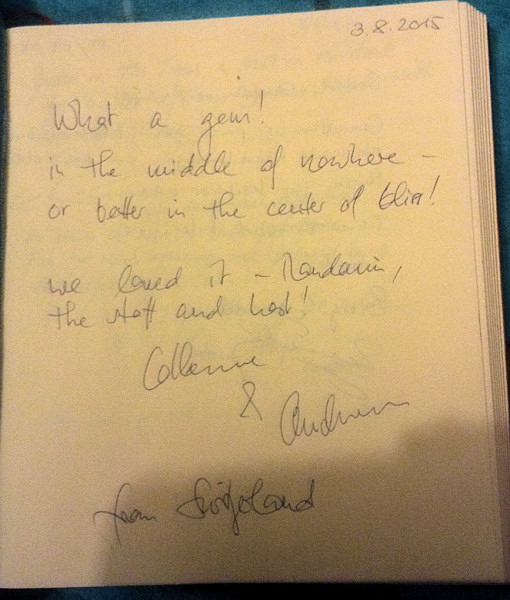 3.8.2015
What a gem!
in the middle of nowhere -
or better in the center of bliss!
we loved it - Mandarin,
the staff and host!
&
from Switzerland